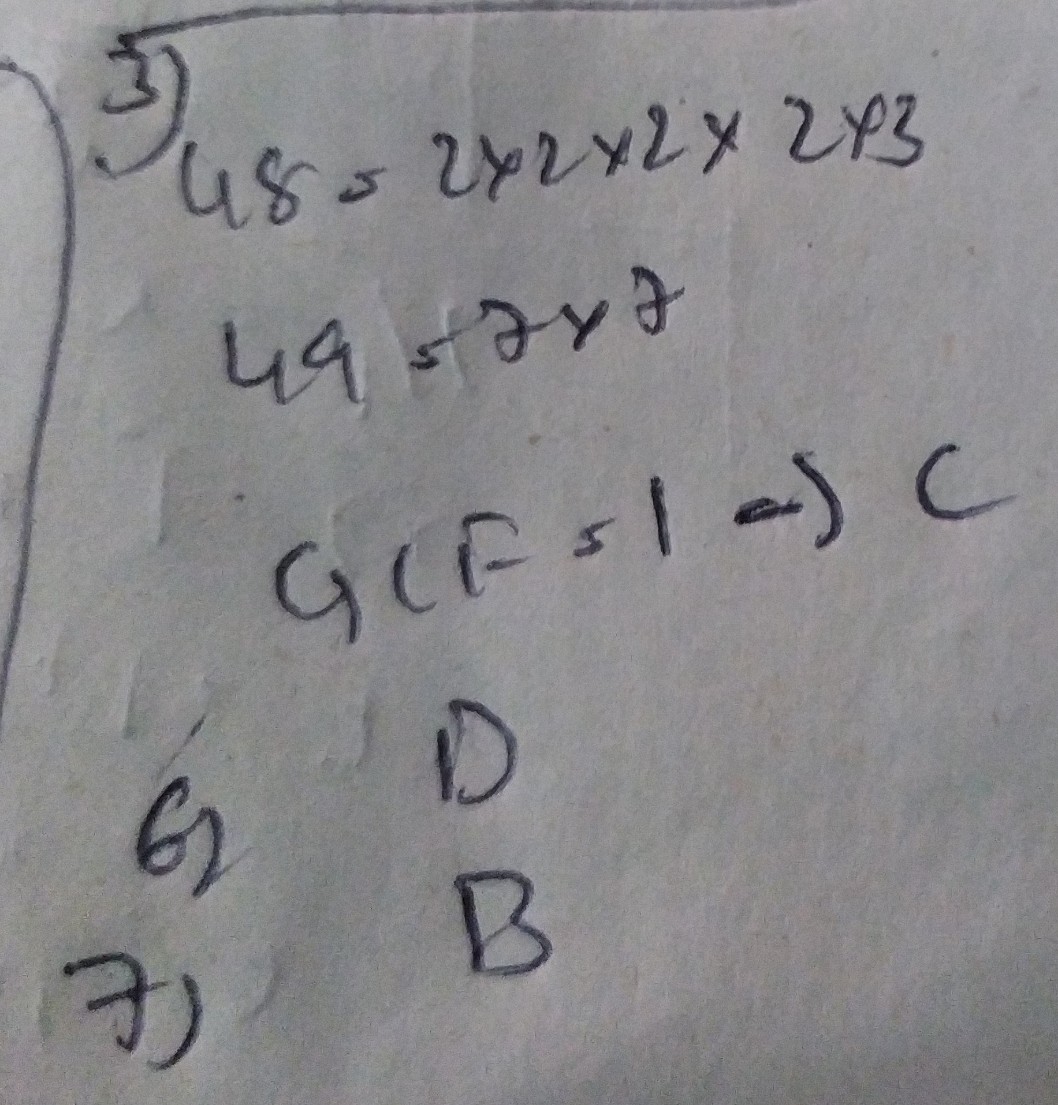 5) 48 = 2×2×2×2×3
49 = 7×7
GCF = 1 → C
6) D
7) B